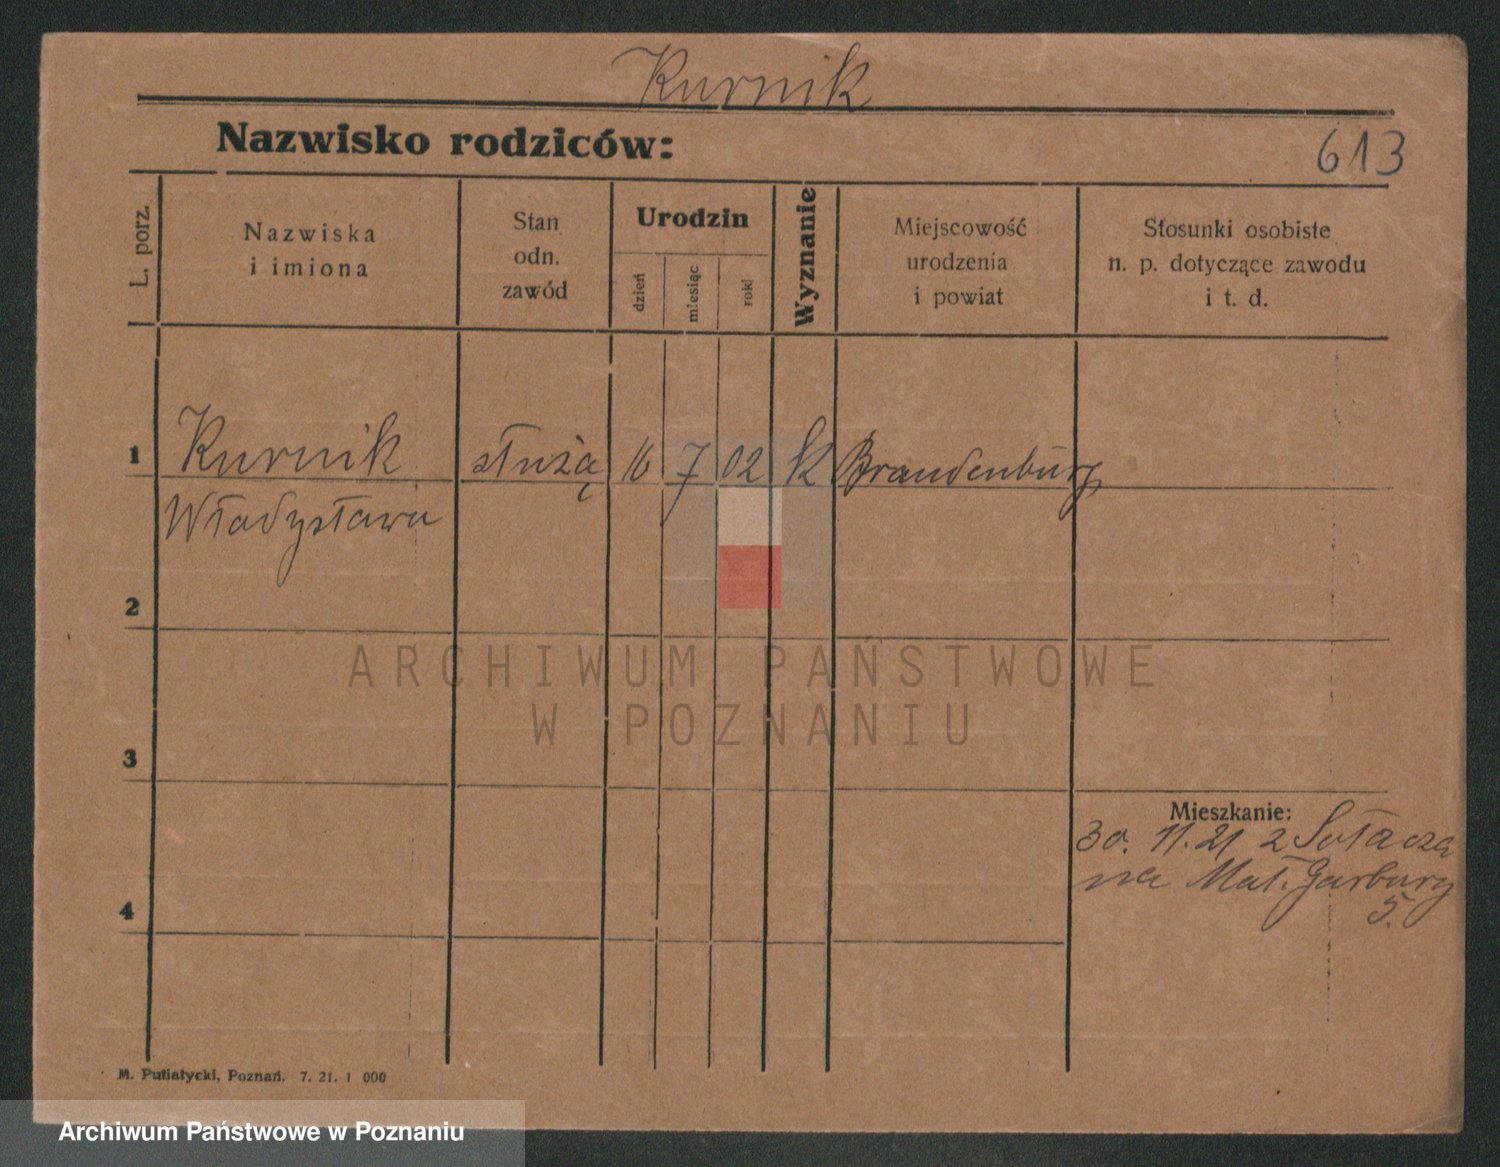 Kurnik
Nazwisko rodziców:
613
L. porz.
Nazwiska
i imiona
Stan
odn.
zawód
Urodzin
dzień
miesiąc
rok
Wyznanie
Miejscowość
urodzenia
i powiat
Stosunki osobiste
n. p. dotyczące zawodu
i t. d.
1
Kurnik
służą
16
7
02
k
Brandenburg
Władysława
2
ARCHIWUM PAŃSTWOWE
W POZNANIU
3
Mieszkanie:
30. 11. 21 z Sołacza
na Mał. Garbary
5.
4
M. Putiatycki, Poznań. 7. 21. 1 000
Archiwum Państwowe w Poznaniu